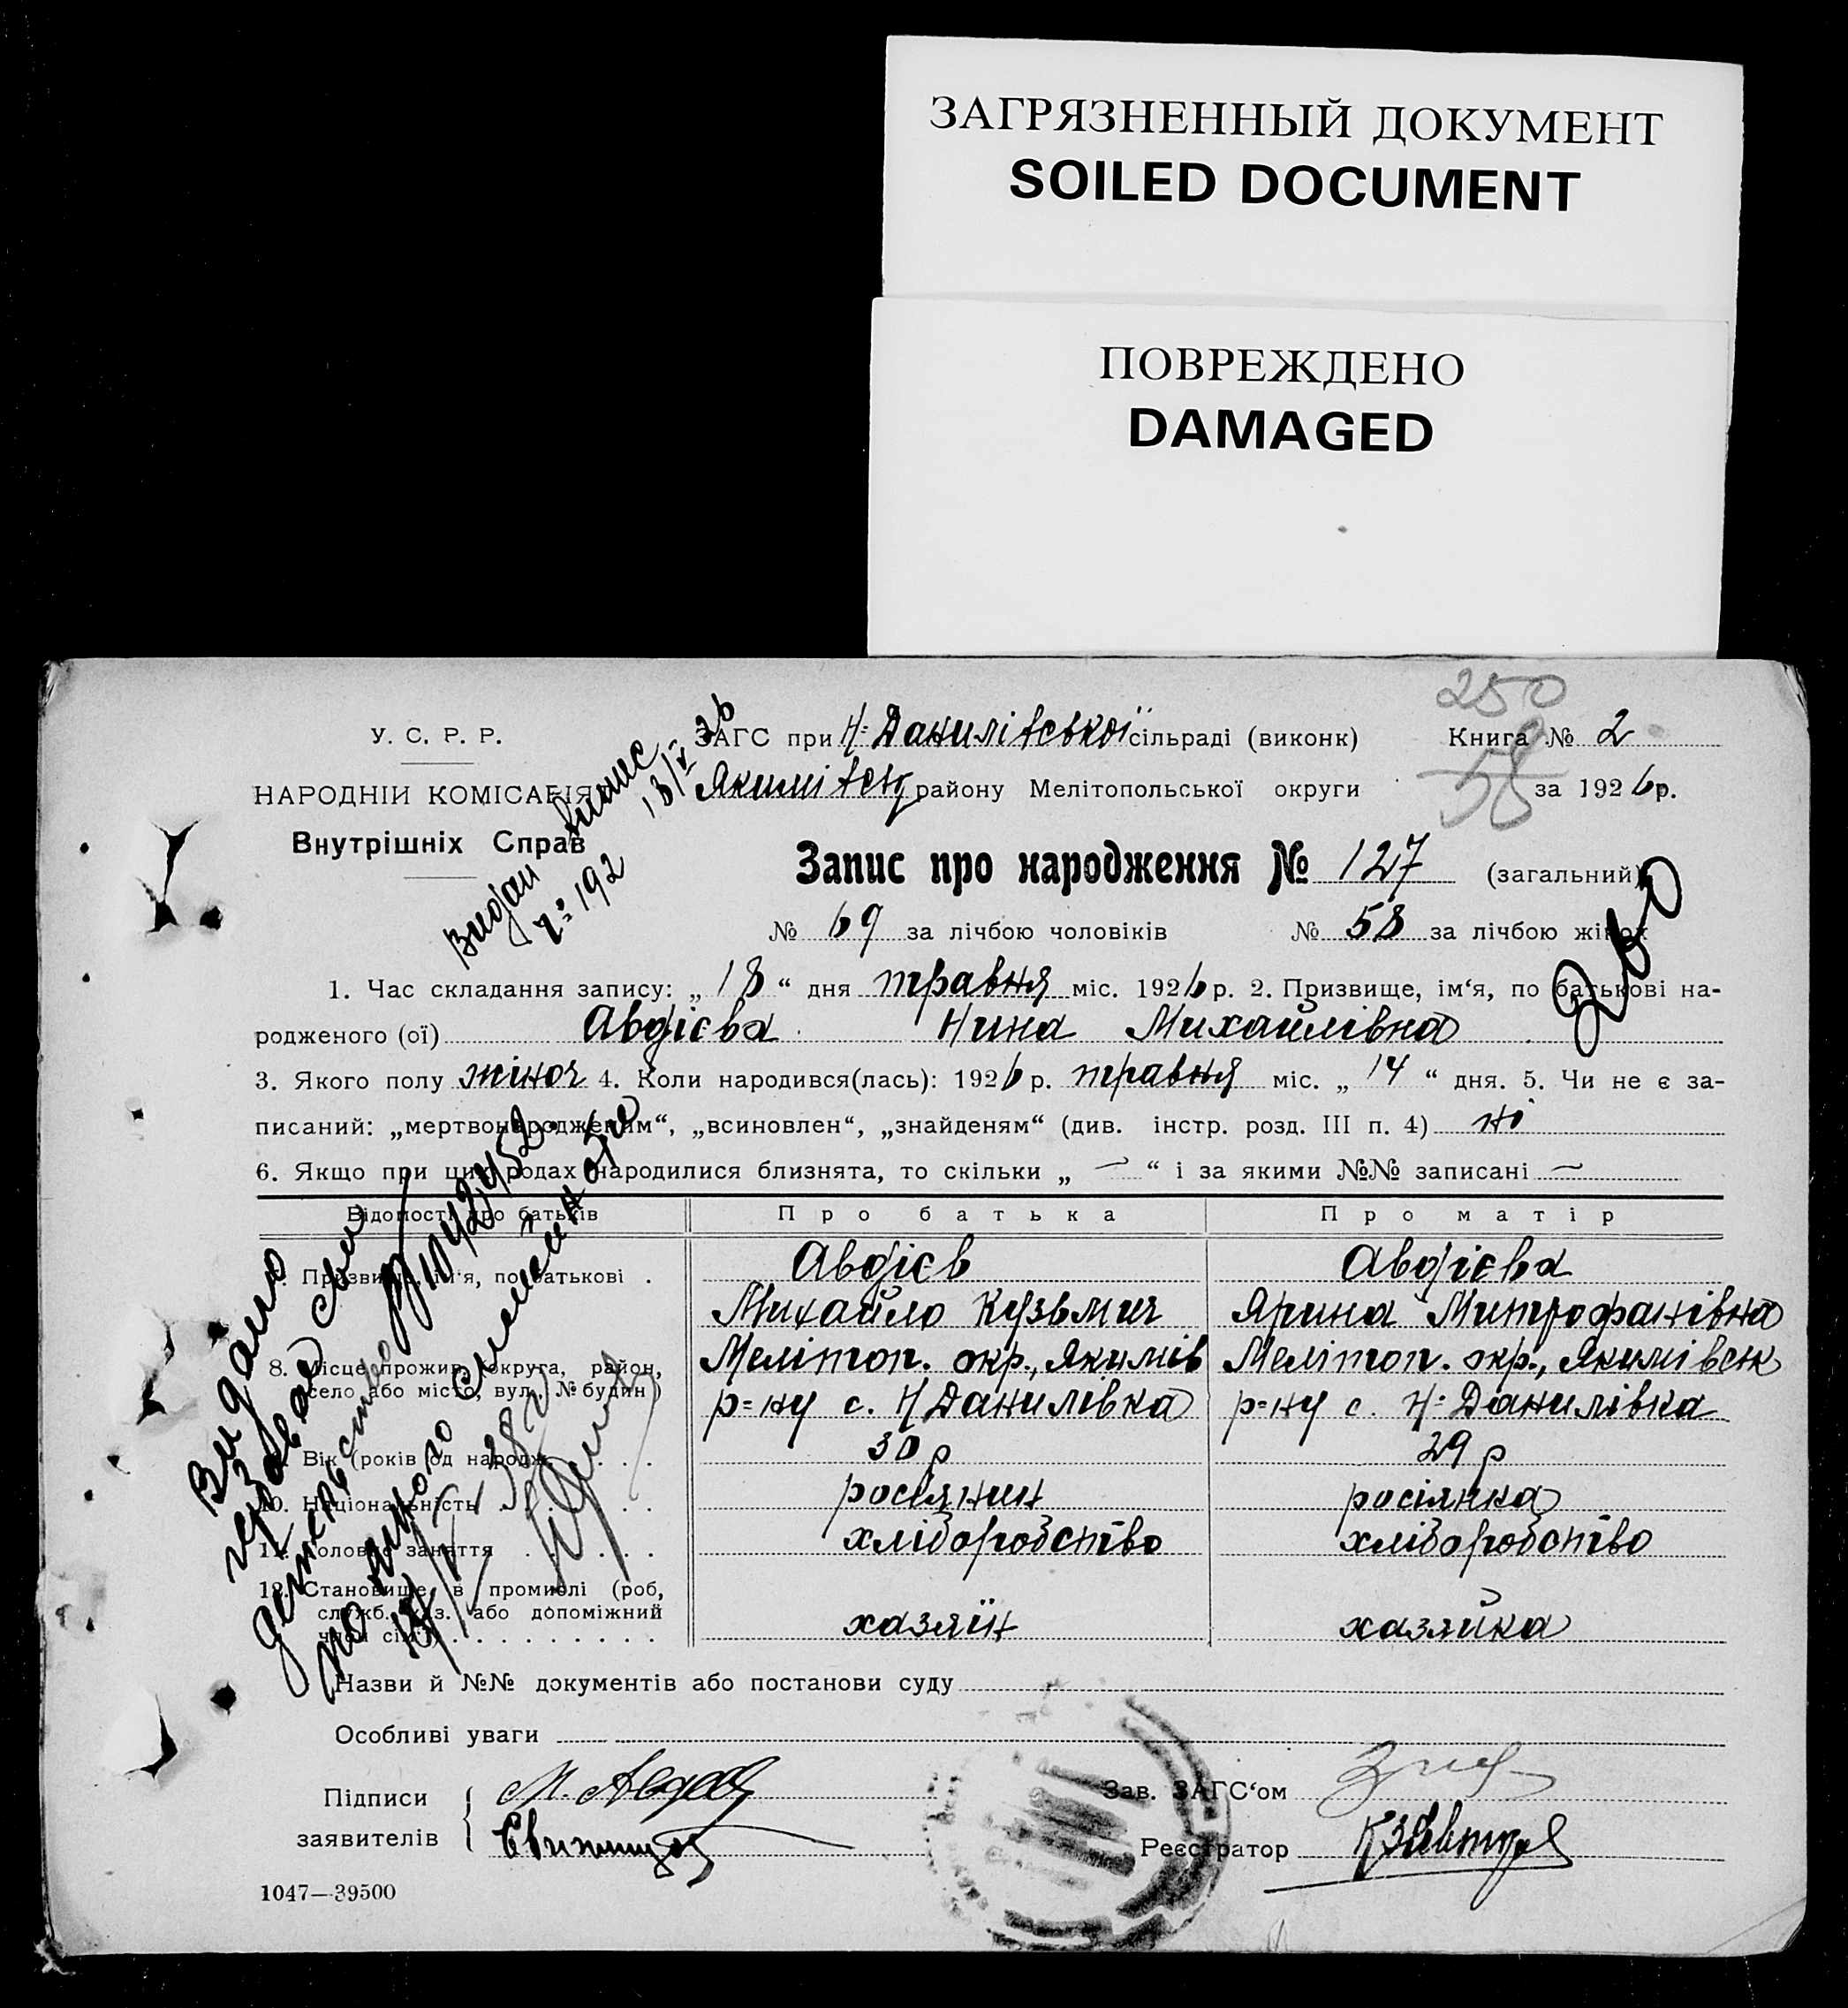 ЗАГРЯЗНЕННЫЙ ДОКУМЕНТ
SOILED DOCUMENT
ПОВРЕЖДЕНО
DAMAGED
250
58
У. С. Р. Р.
НАРОДНІЙ КОМІСАРІЯТ
Внутрішніх Справ
Видан випис 18/V 26
ч: 192
ЗАГС при Н-Данилівської сільраді (виконк) Книга № 2
Якимівськ району Мелітопольської округи за 1926 р.
Запис про народження № 127 (загальний)
260
№ 69 за лічбою чоловіків № 58 за лічбою жінок
1. Час складання запису: „ 18 “ дня травня міс. 1926 р. 2. Призвище, ім‘я, по батькові на-
родженого (ої) Авдієва Нина Михайлівна
3. Якого полу жіноч 4. Коли народився(лась): 1926 р. травня міс. „ 14 “ дня. 5. Чи не є за-
писаний: „мертвонародженям“, „всиновлен“, „знайденям“ (див. інстр. розд. III п. 4) ні
6. Якщо при цих родах народилися близнята, то скільки „ — “ і за якими №№ записані —
Відомості про батьків Про батька Про матір
7. Призвище, ім‘я, по батькові . Авдієв Авдієва
Михайло Кузьмич Ярина Митрофанівна
8. Місце прожив. (округа, район, МеліTоп. окр., Якимів Мелітоп. окр., Якимівськ
село або місто, вул., № будин.) р=ну с. Н Данилівка р=ну с. Н-Данилівка
9. Вік (років од народж. . . . 30 р 29 р
10. Національність . . . . . росіянин росіянка
11. Головне заняття . . . . . хліборобство хліборобство
12. Становище в промислі (роб,
служб. хаз. або допоміжний
член сім‘ї) . . . . . . . . . хазяїн хазяйка
Видано
детельство
18/V 38
Назви й №№ документів або постанови суду
Особливі уваги
Підписи
заявителів
Зав. ЗАГС‘ом
Реєстратор
1047—39500